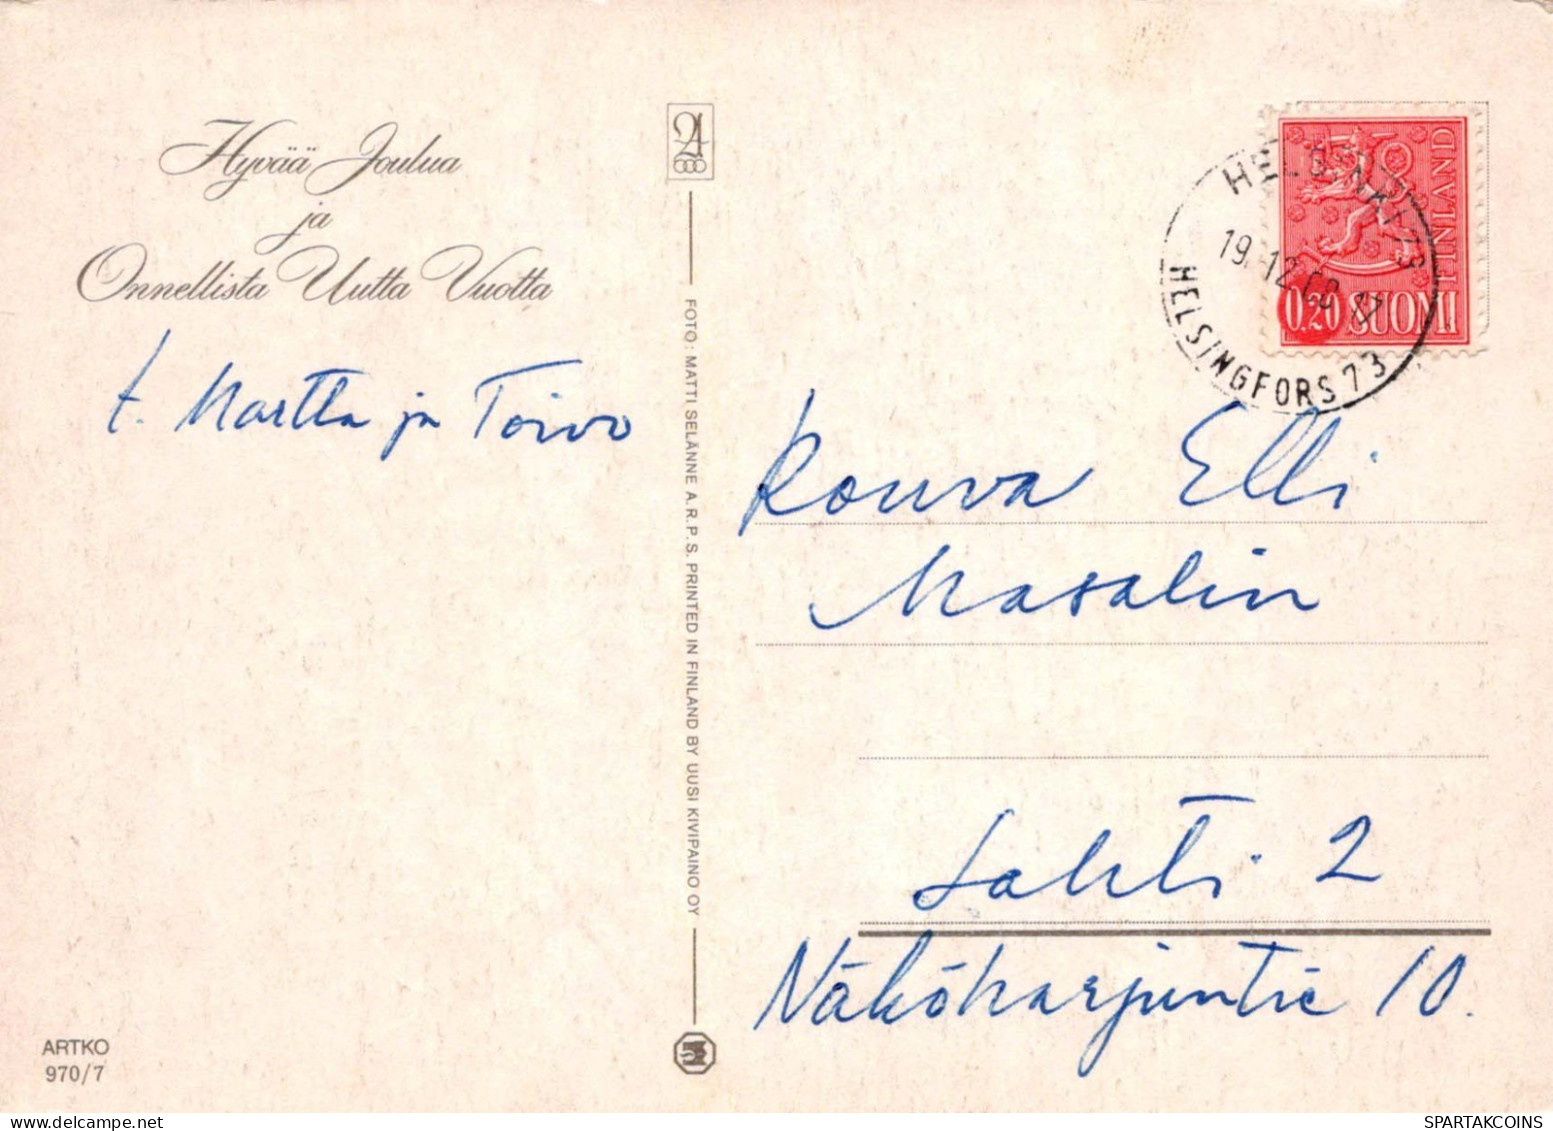 Hyvää Joulua
ja
Onnellista Uutta Vuotta
t. Martta ja Toivo
FOTO: MATTI SELÄNNE A.R.P.S. PRINTED IN FINLAND BY UUSI KIVIPAINO OY
ARTKO
970/7
HELSINKI 73
19.12. 17
HELSINGFORS 73
FINLAND
0,20 SUOMI
Rouva Elli
Masalin
Lahti 2
Näköharjuntie 10.
SPARTAKCOINS
delcampe.net